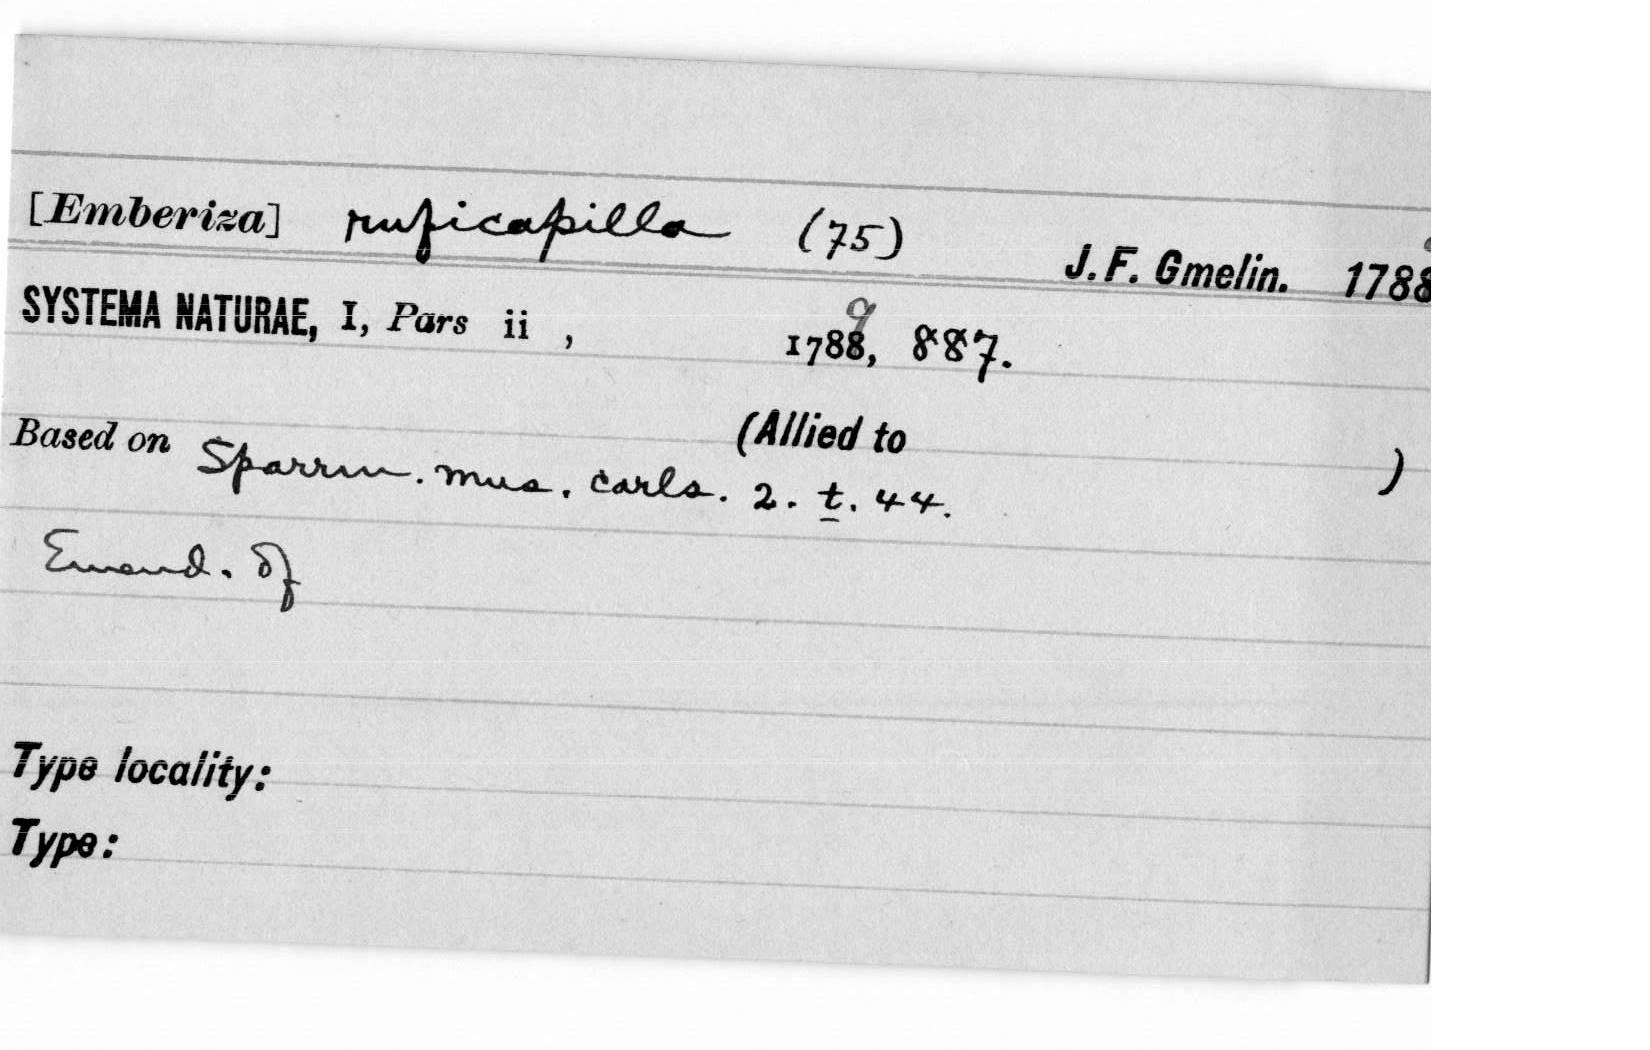 [Emberiza] ruficapilla (75)
J. F. Gmelin. 1788
SYSTEMA NATURAE, I, Pars ii , 1788, 887.
9
Based on Sparrm. mus. carls. 2. t. 44.
(Allied to )
Emend. of
Type locality:
Type: